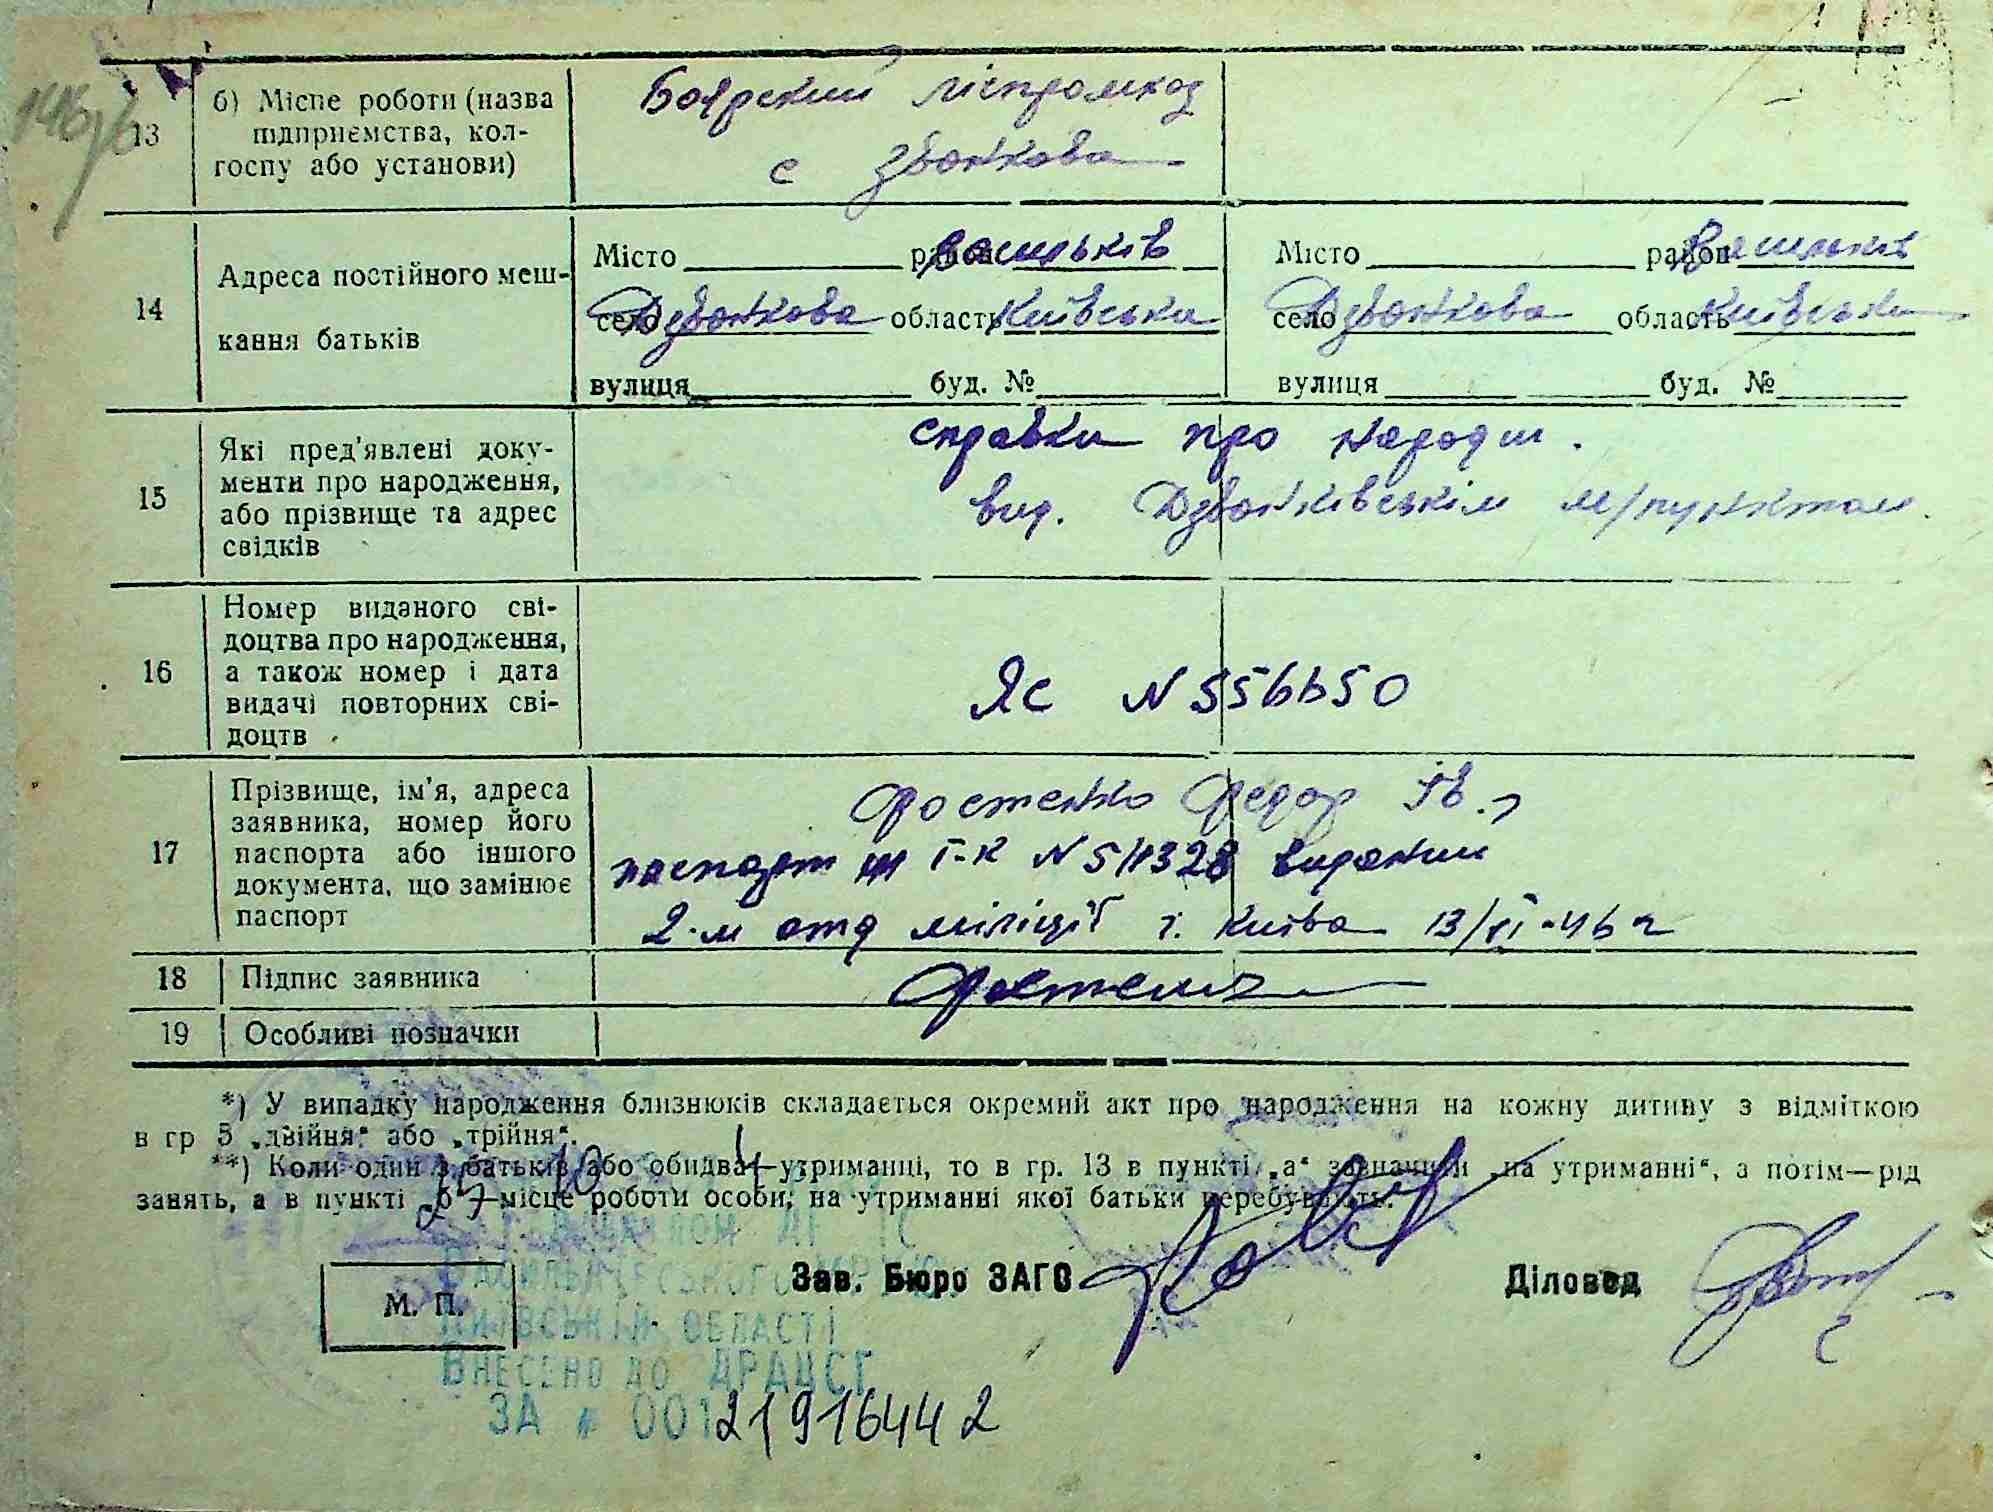 146/6
13
б) Місце роботи (назва
підприємства, кол-
госпу або установи)
Боярский ліспромхоз
с Звонкова
14
Адреса постійного меш-
кання батьків
Місто район Васильків
село Дзвонкова область Київська
вулиця буд. №
Місто район Васильків
село Дзвонкова область Київська
вулиця буд. №
15
Які пред'явлені доку-
менти про народження,
або прізвище та адрес
свідків
справки про народж.
вид. Дзвонківськім м/пунктом.
16
Номер виданого сві-
доцтва про народження,
а також номер і дата
видачі повторних сві-
доцтв
ЯС N 556650
17
Прізвище, ім'я, адреса
заявника, номер його
паспорта або іншого
документа, що замінює
паспорт
Фостенко Федор Ів.,
паспорт І-К N 511328 виданий
2-м отд міліції г. Київа 13/VI-46 г
18
Підпис заявника
19
Особливі позначки
*) У випадку народження близнюків складається окремий акт про народження на кожну дитину з відміткою
в гр 5 „двійня" або „трійня".
**) Коли один з батьків або обидва—утриманці, то в гр. 13 в пункті „а" зазначити „на утриманні", а потім—рід
занять, а в пункті „б"—місце роботи особи, на утриманні якої батьки перебувають.
Зав. Бюро ЗАГС
Діловод
М. П.
Васильківського
Київській області
Внесено до ДРАЦСГ
за № 00121916442